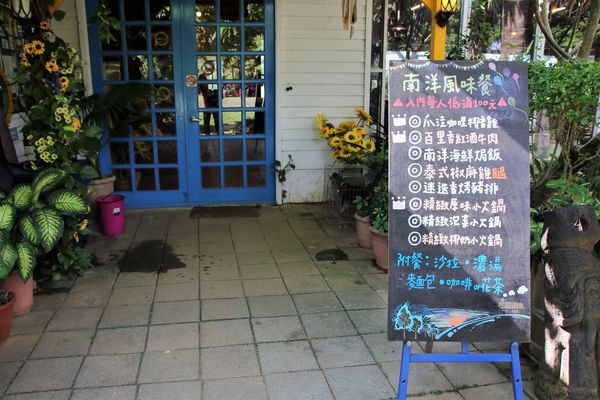 南洋風味餐
▲入內每人低消100元▲
◎爪洼咖哩椰香雞
◎百里香紅酒牛肉
◎南洋海鮮焗飯
◎泰式椒麻雞腿
◎迷迭香烤豬排
◎精緻原味小火鍋
◎精緻泡菜小火鍋
◎精緻椰奶小火鍋
附餐：沙拉。濃湯
麵包。咖啡or花茶